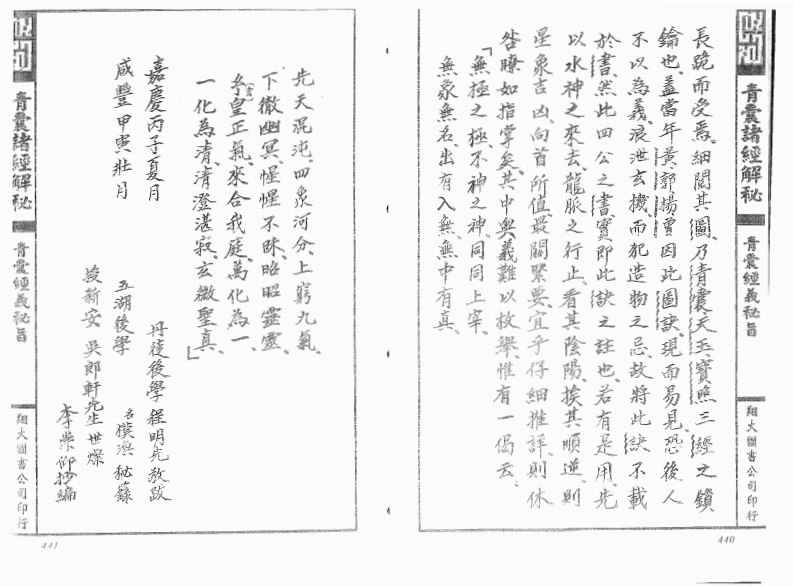 青囊諸經解秘
青囊經義秘旨
翔大圖書公司印行
長跪而受焉、細閱其圖、乃青囊天玉、寶照三經之鎖
鑰也、蓋當年黃郭楊曾因此圖訣、現而易見、恐後人
不以為義、浪泄玄機、而犯造物之忌、故將此訣不載
於書、然此四公之書、實即此訣之註也、若有是用、先
以水神之來去、龍脈之行止、看其陰陽、挨其順逆、則
星象吉凶、向首所值、最關緊要、宜乎仔細推詳、則休
咎瞭如指掌矣、其中奧義難以枚舉、惟有一偈云、
「無極之極、不神之神、同同上宰、
無象無名、出有入無、無中有真、
440
先天混沌、四象河分、上窮九氣、
下徹幽冥、惺惺不昧、昭昭靈靈、
皇正氣、來合我庭、萬化為一、
一化為清、清澄湛寂、玄微聖真、」
嘉慶丙子夏月 丹徒後學 程明先敬跋
咸豐甲寅壯月 五湖後學 名樸漁 秘籙
授新安 吳郎軒先生 世燦
李崇仰抄編
青囊諸經解秘
青囊經義秘旨
翔大圖書公司印行
441